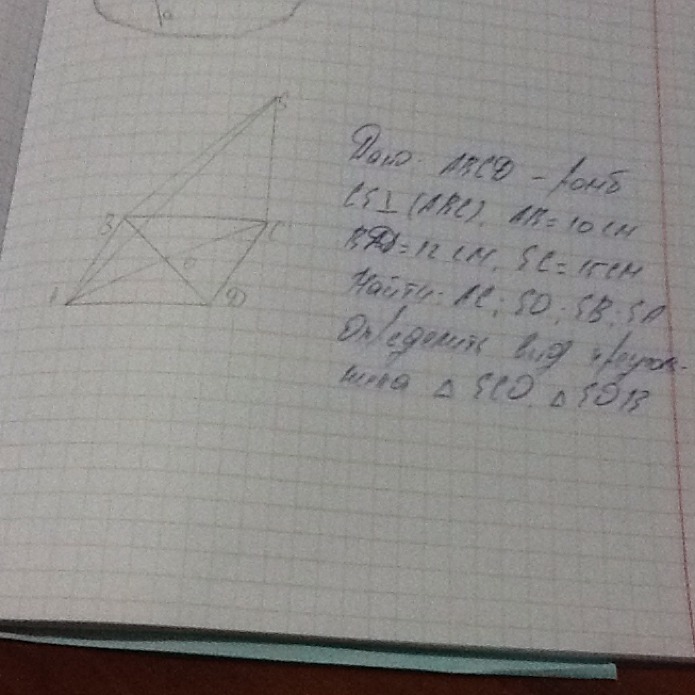 a
S
B
C
O
A
D
Дано: ABCD – ромб
CS⊥(ABC), AB=10 см
BD=12 см, SC=15 см
Найти: AC; SO; SB; SA
Определить вид треуголь-
ника △ SCO, △ SOB